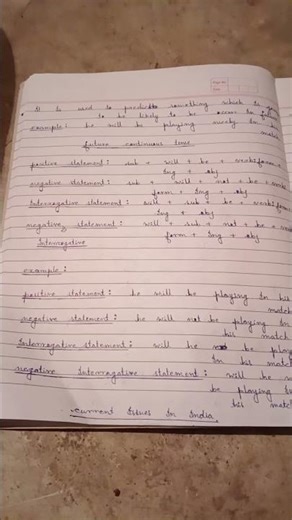 It is used to predict something which is
to be likely to be occur to
example: he will be playing in his
match
future continuous tense
positive statement: sub + will + be + verb I form +
Ing + obj
negative statement: sub + will + not + be + verb
form + Ing + obj
Interrogative statement: will + sub + be + verb I form
Ing + obj
negative statement: will + sub + not + be + verb
Interrogative form + Ing + obj
example:
positive statement: he will be playing in his
match
negative statement: he will not be playing in
his match
Interrogative statement: will he be playing
In his match
negative Interrogative statement: will he
be playing in
his match
current Issues In India